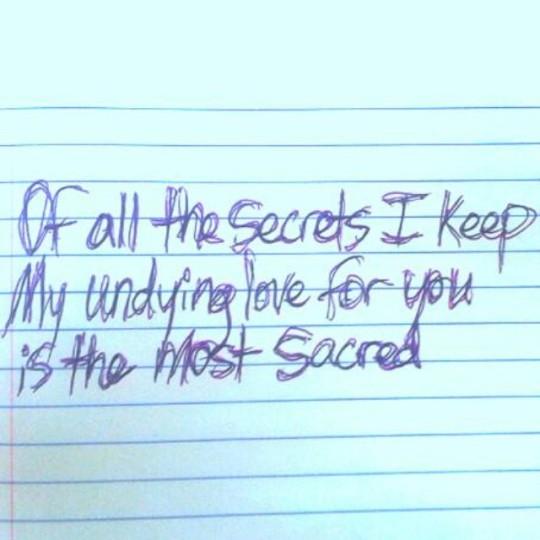 Of all the Secrets I Keep
My undying love for you
is the most Sacred